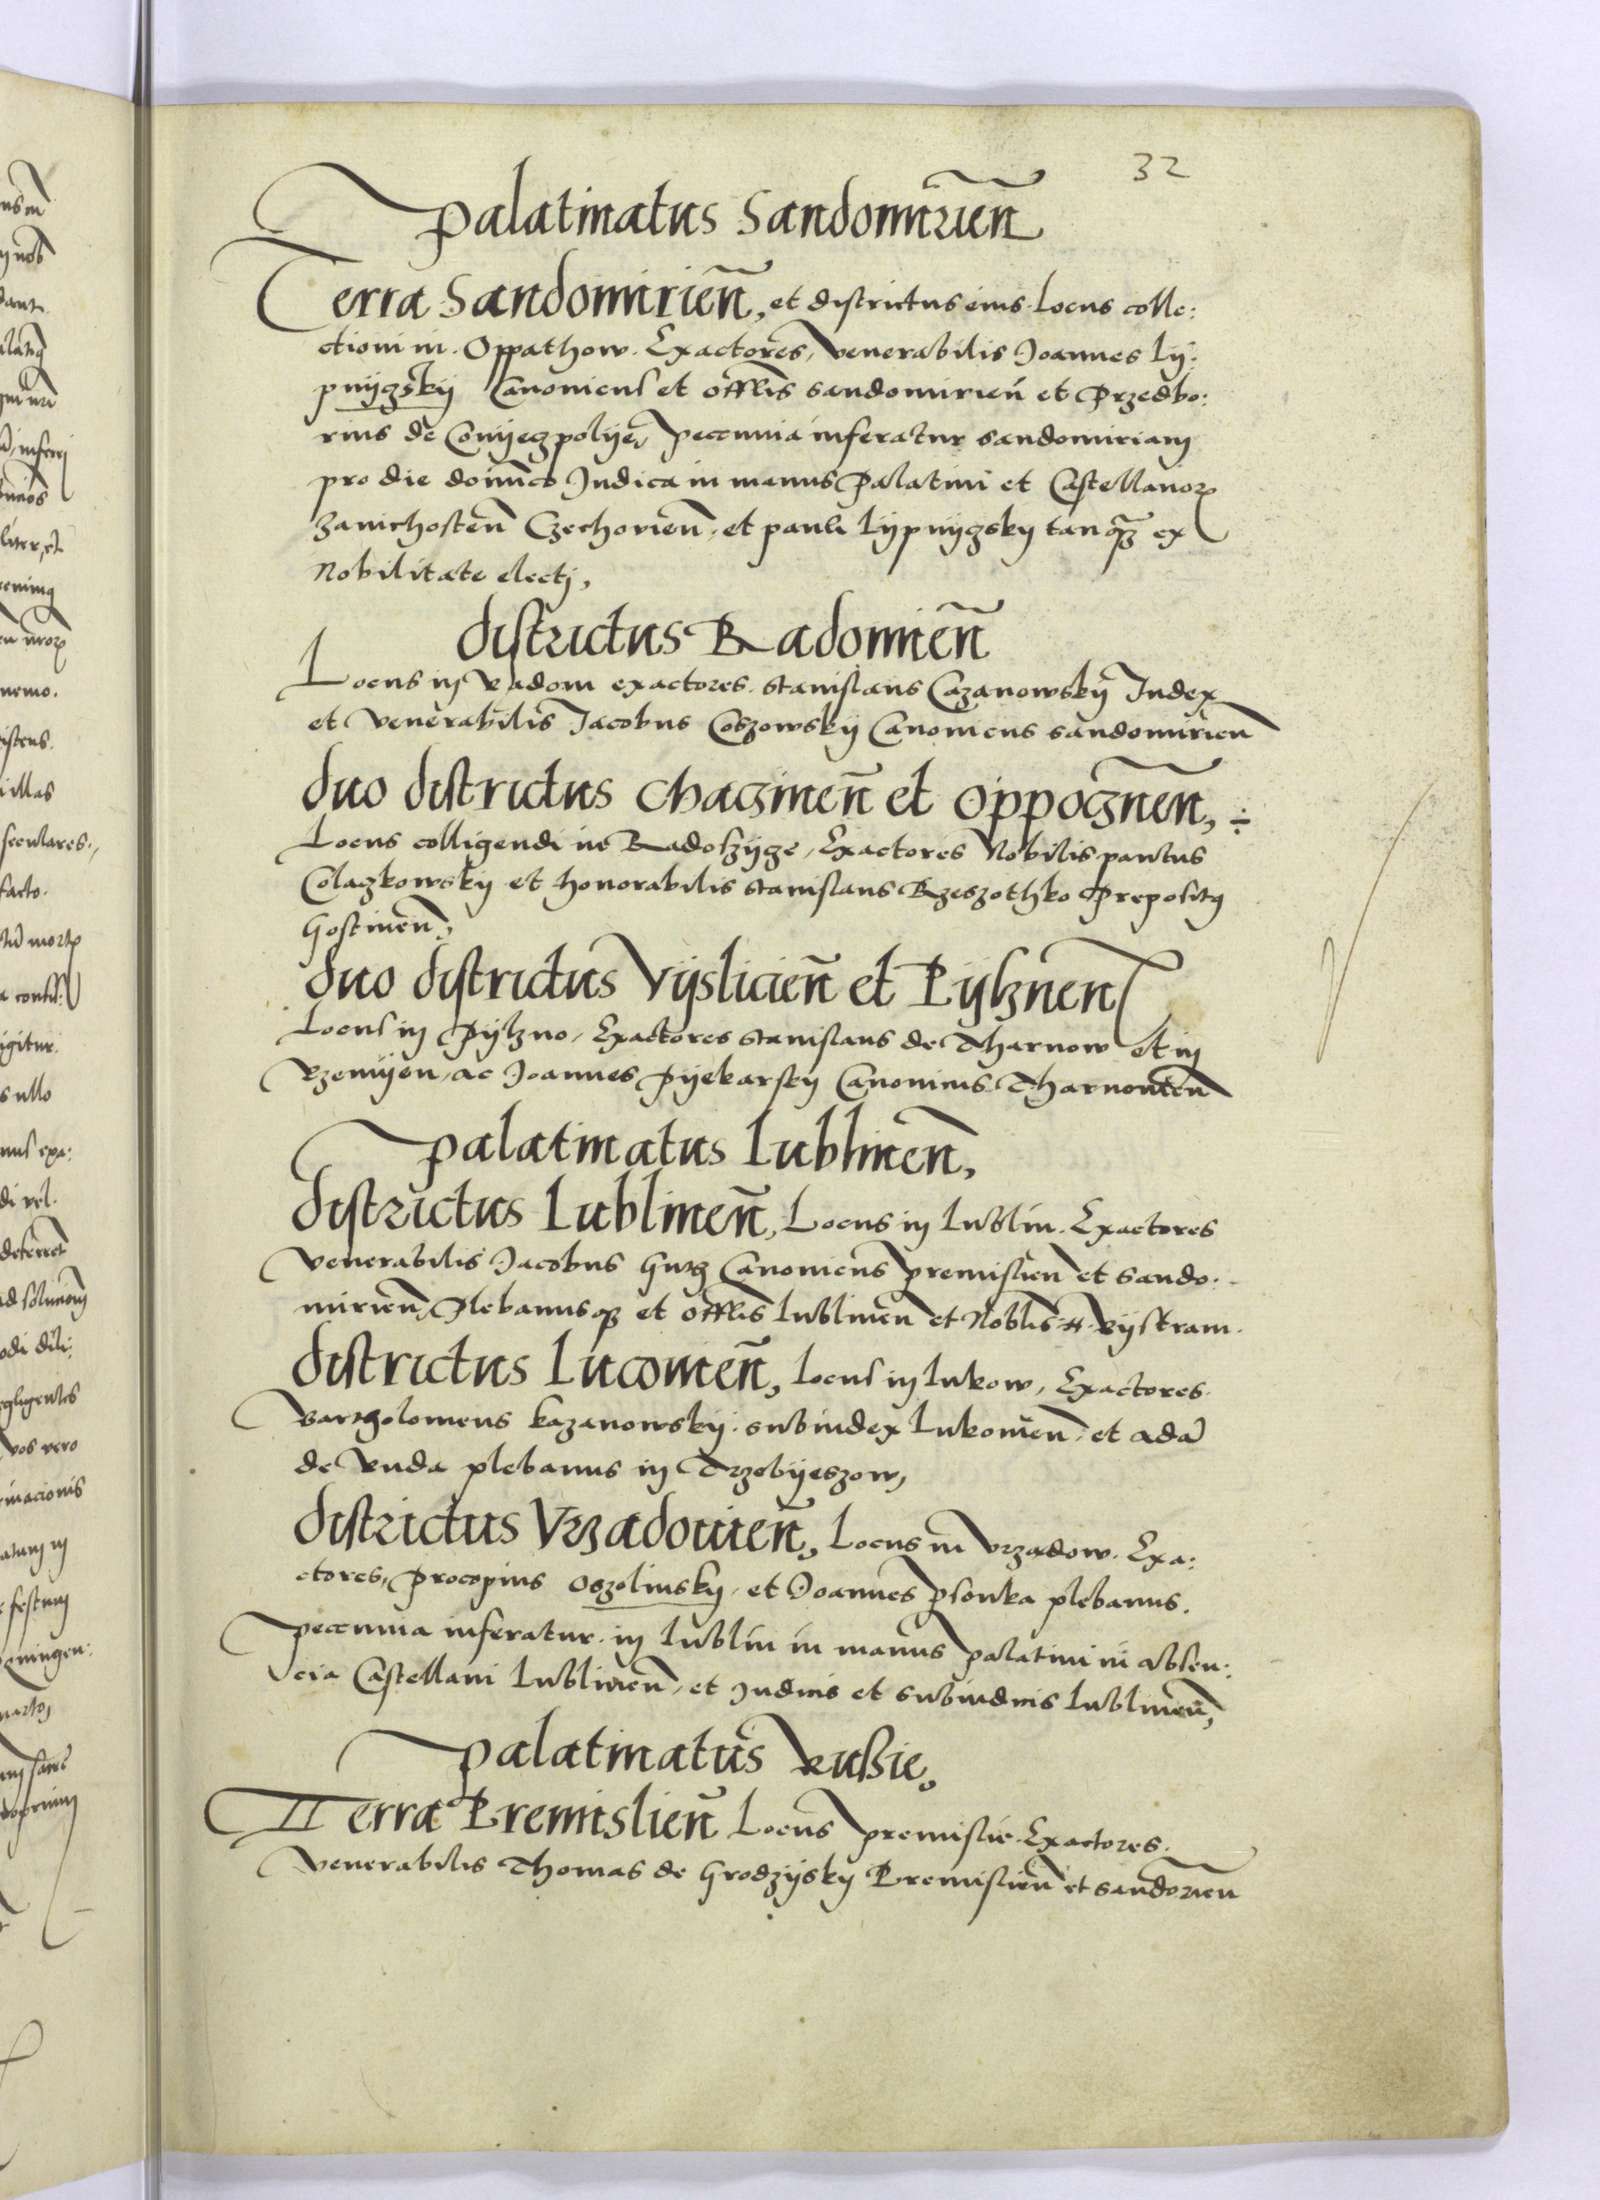 32
Palatinatus Sandomirien̄
Terra Sandomirien̄, et districtus eius. Locus colle:
ctioni in. Oppathow. Exactores, Venerabilis Joannes Lÿ:
pnÿgzskÿ Canonicus et offlis sandomirien̄ et Przedbo:
rius de Conÿeczpolÿe, peccunia inferatur sandomiriam
pro die domīco Iudica in manus Palatini et Castellanorꝝ
Zanichosten̄ Czechovien̄. et pauli Lÿpnÿgsky tanqꝫ ex
Nobilitate electi,
districtus Radomien̄
Locus in Radom exactores. stanislaus Cazanowskÿ Iudex
et Venerabilis Jacobus Coszowskÿ Canonicus sandomirien̄
duo districtus Chaczinen̄ et Oppocznen̄, ÷
Locus colligendi in Radoszÿcze, Exactores Nobilis paulus
Colaczkowskÿ et honorabilis stanislaus Rzeszothko Preposituꝯ
Gostinen̄,
duo districtus Vÿslicien̄ et Pÿlznen̄
Locus in Pÿlzno, Exactores stanislaus de Tharnow et in
Rzemÿen, ac Joannes Pÿekarsky Canonicus Tharnovien̄
Palatinatus Lublinen̄,
districtus Lublinen̄, Locus in Lublin. Exactores
Venerabilis Jacobus Gurg Canonicus premislien̄ et sando:
mirien̄, Plebanusqꝫ et offlis Lublinen̄ et Noblis. N. Bÿstram.
districtus Lucovien̄, Locus in Lukow, Exactores.
Bartholomeus Kazanowskÿ. subiudex Lukovien̄. et Adā
de Ruda plebanus in Trzebÿeszow,
districtus Vrzadovien̄, Locus in Vrzadow. Exa:
ctores, Procopius Oszolinsky, et Joannes psonka plebanus.
peccunia inferatur. in Lublin in manus palatini in absen:
cia Castellani Lublinen̄, et Iudicis et subiudicis Lublinen̄,
Palatinatus Russie,
Terra Premislien̄ Locus premislie. Exactores.
Venerabilis Thomas de Grodzÿsky Premislien̄ et sandorien̄